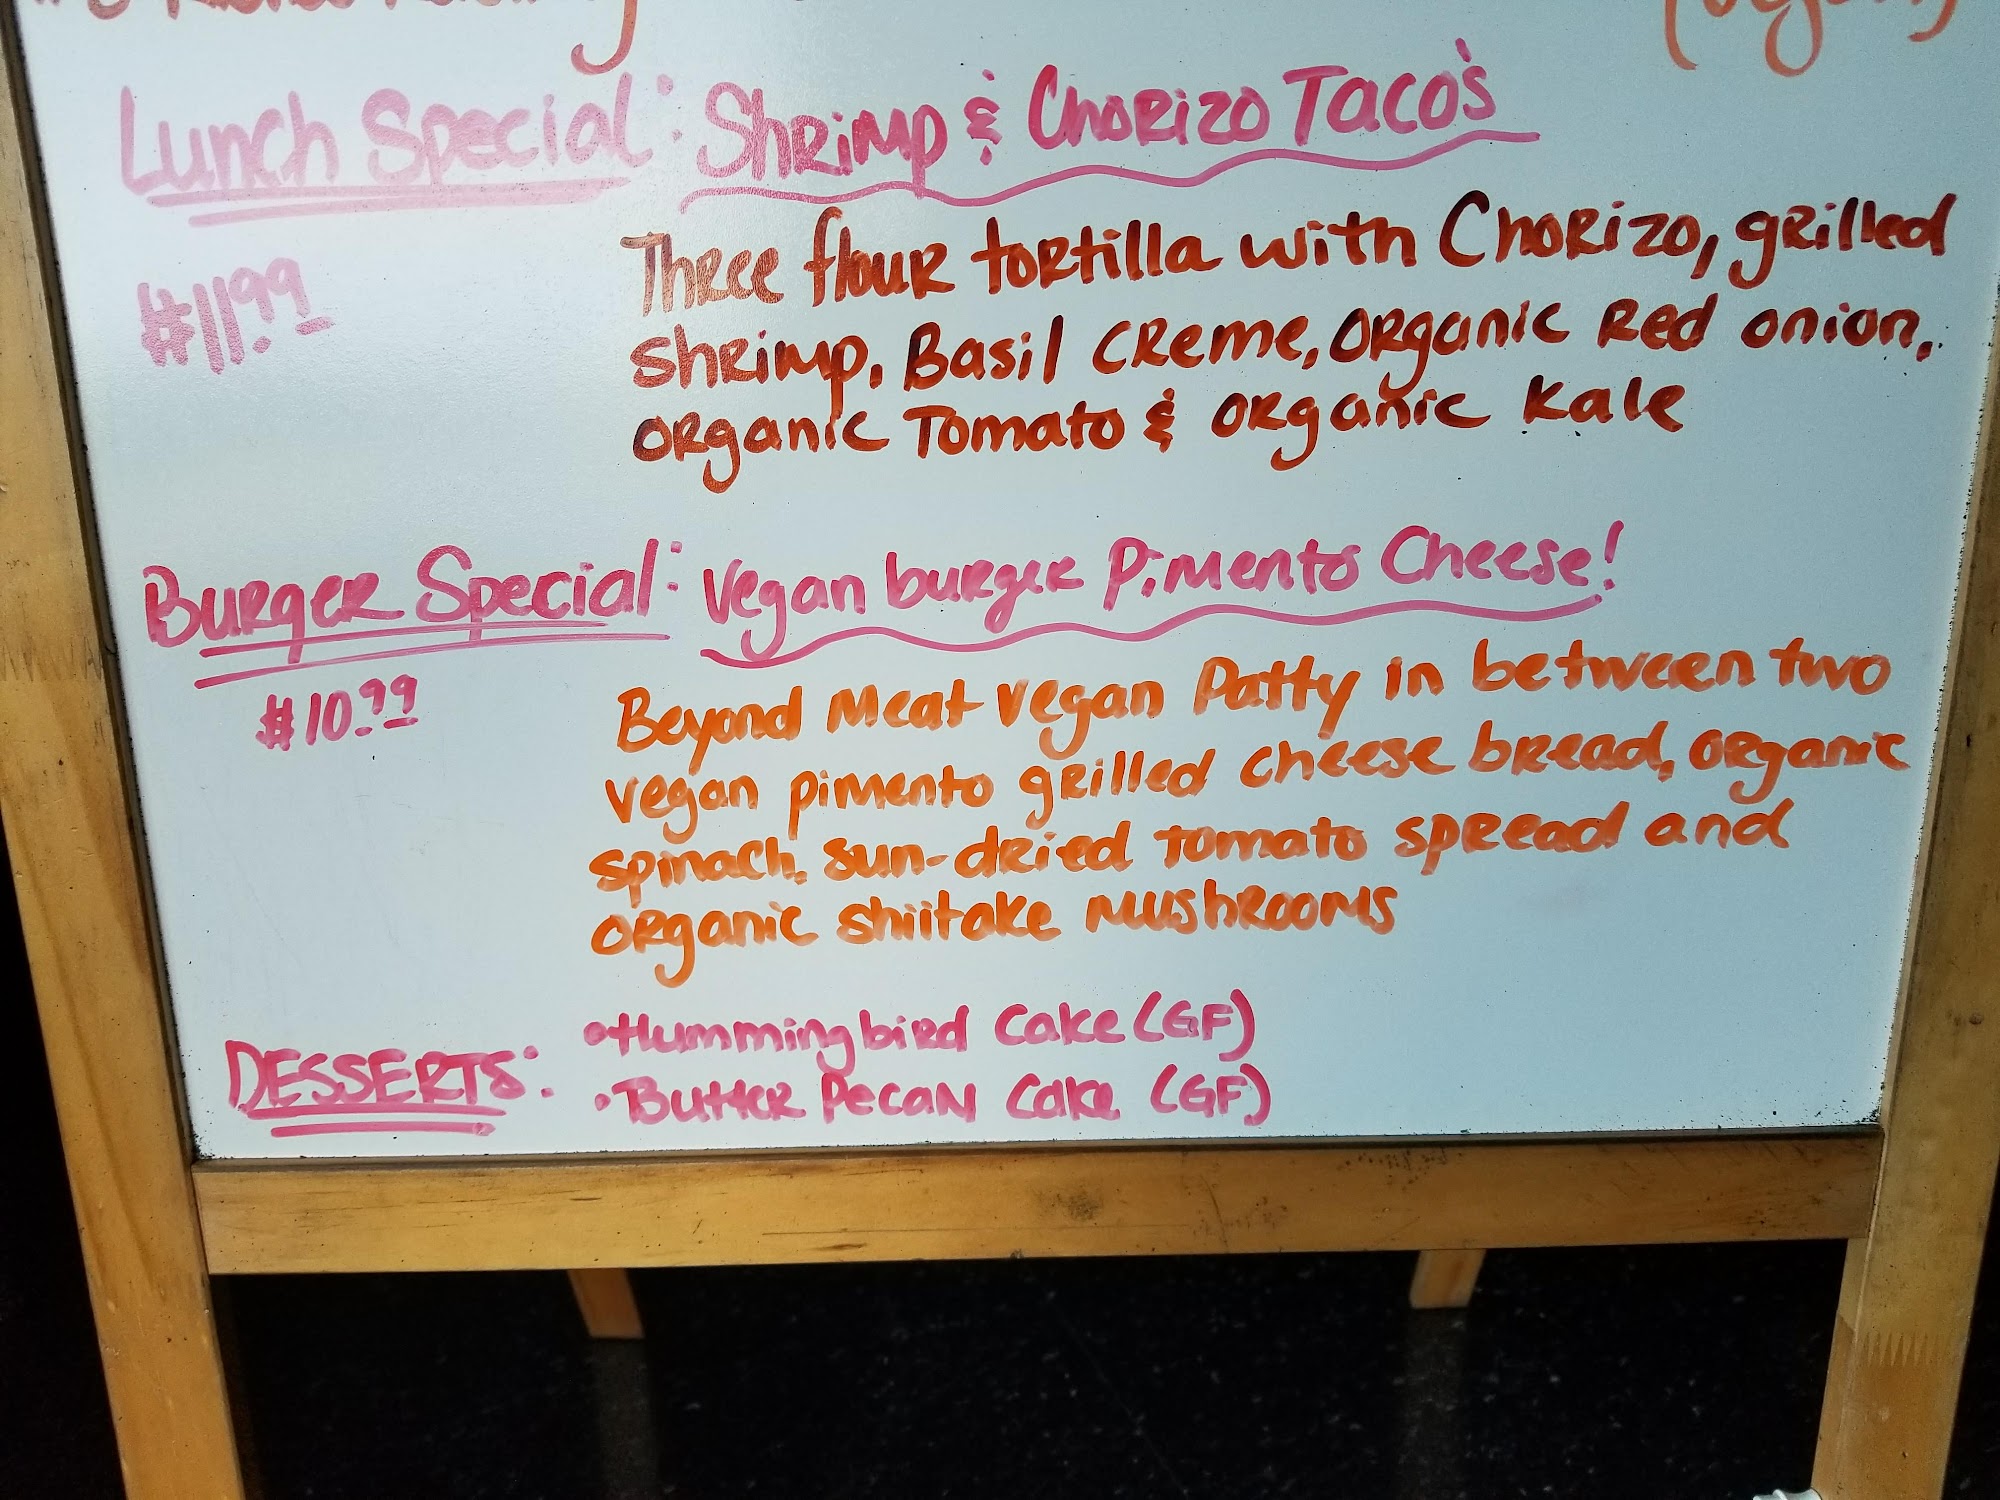 (vegan)
Lunch Special: Shrimp & Chorizo Taco's
$11.99
Three flour tortilla with Chorizo, grilled
shrimp, Basil creme, organic Red onion,
organic Tomato & organic Kale
Burger Special: Vegan burger Pimento Cheese!
$10.99
Beyond Meat Vegan Patty in between two
vegan pimento grilled cheese bread, organic
spinach, sun-dried tomato spread and
organic shiitake mushrooms
DESSERTS: • Hummingbird Cake (GF)
• Butter Pecan Cake (GF)